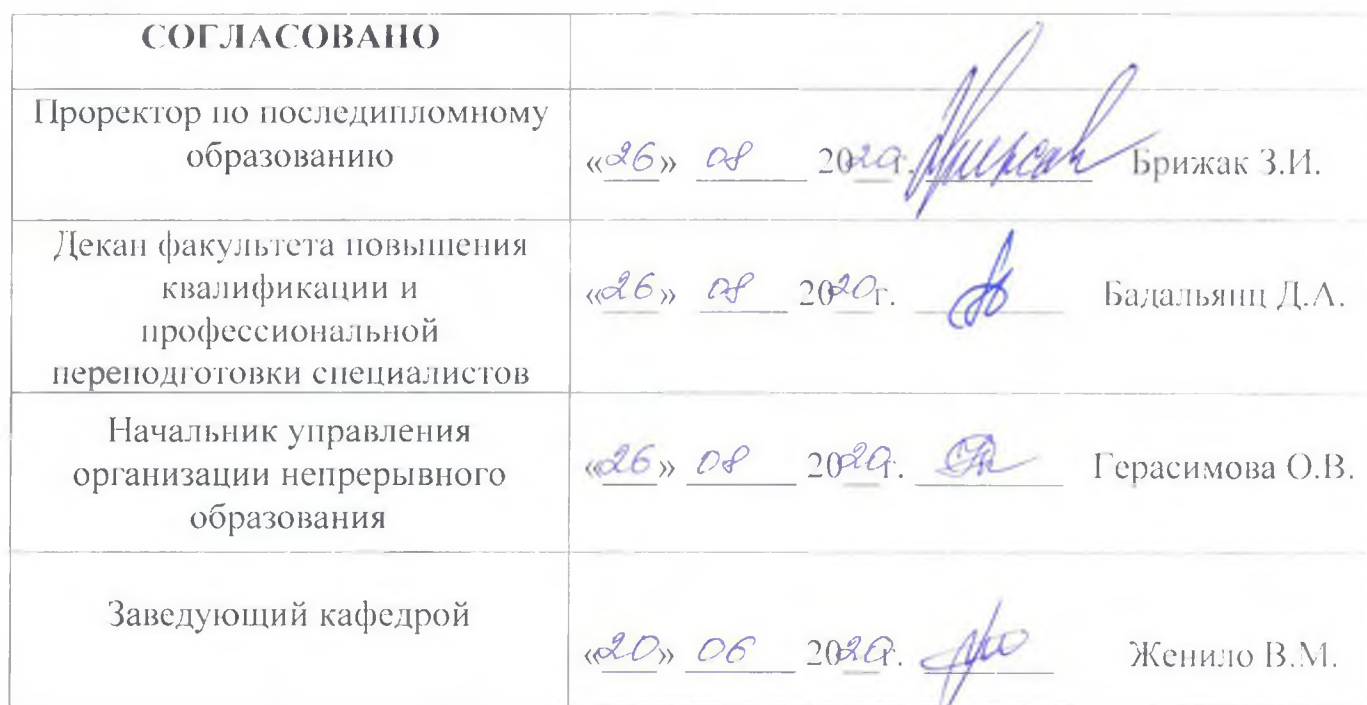 СОГЛАСОВАНО
Проректор по последипломному
образованию
«26» 08 2020г. Брижак З.И.
Декан факультета повышения
квалификации и
профессиональной
переподготовки специалистов
«26» 08 2020г. Бадальянц Д.А.
Начальник управления
организации непрерывного
образования
«26» 08 2020г. Герасимова О.В.
Заведующий кафедрой
«20» 06 2020г. Женило В.М.